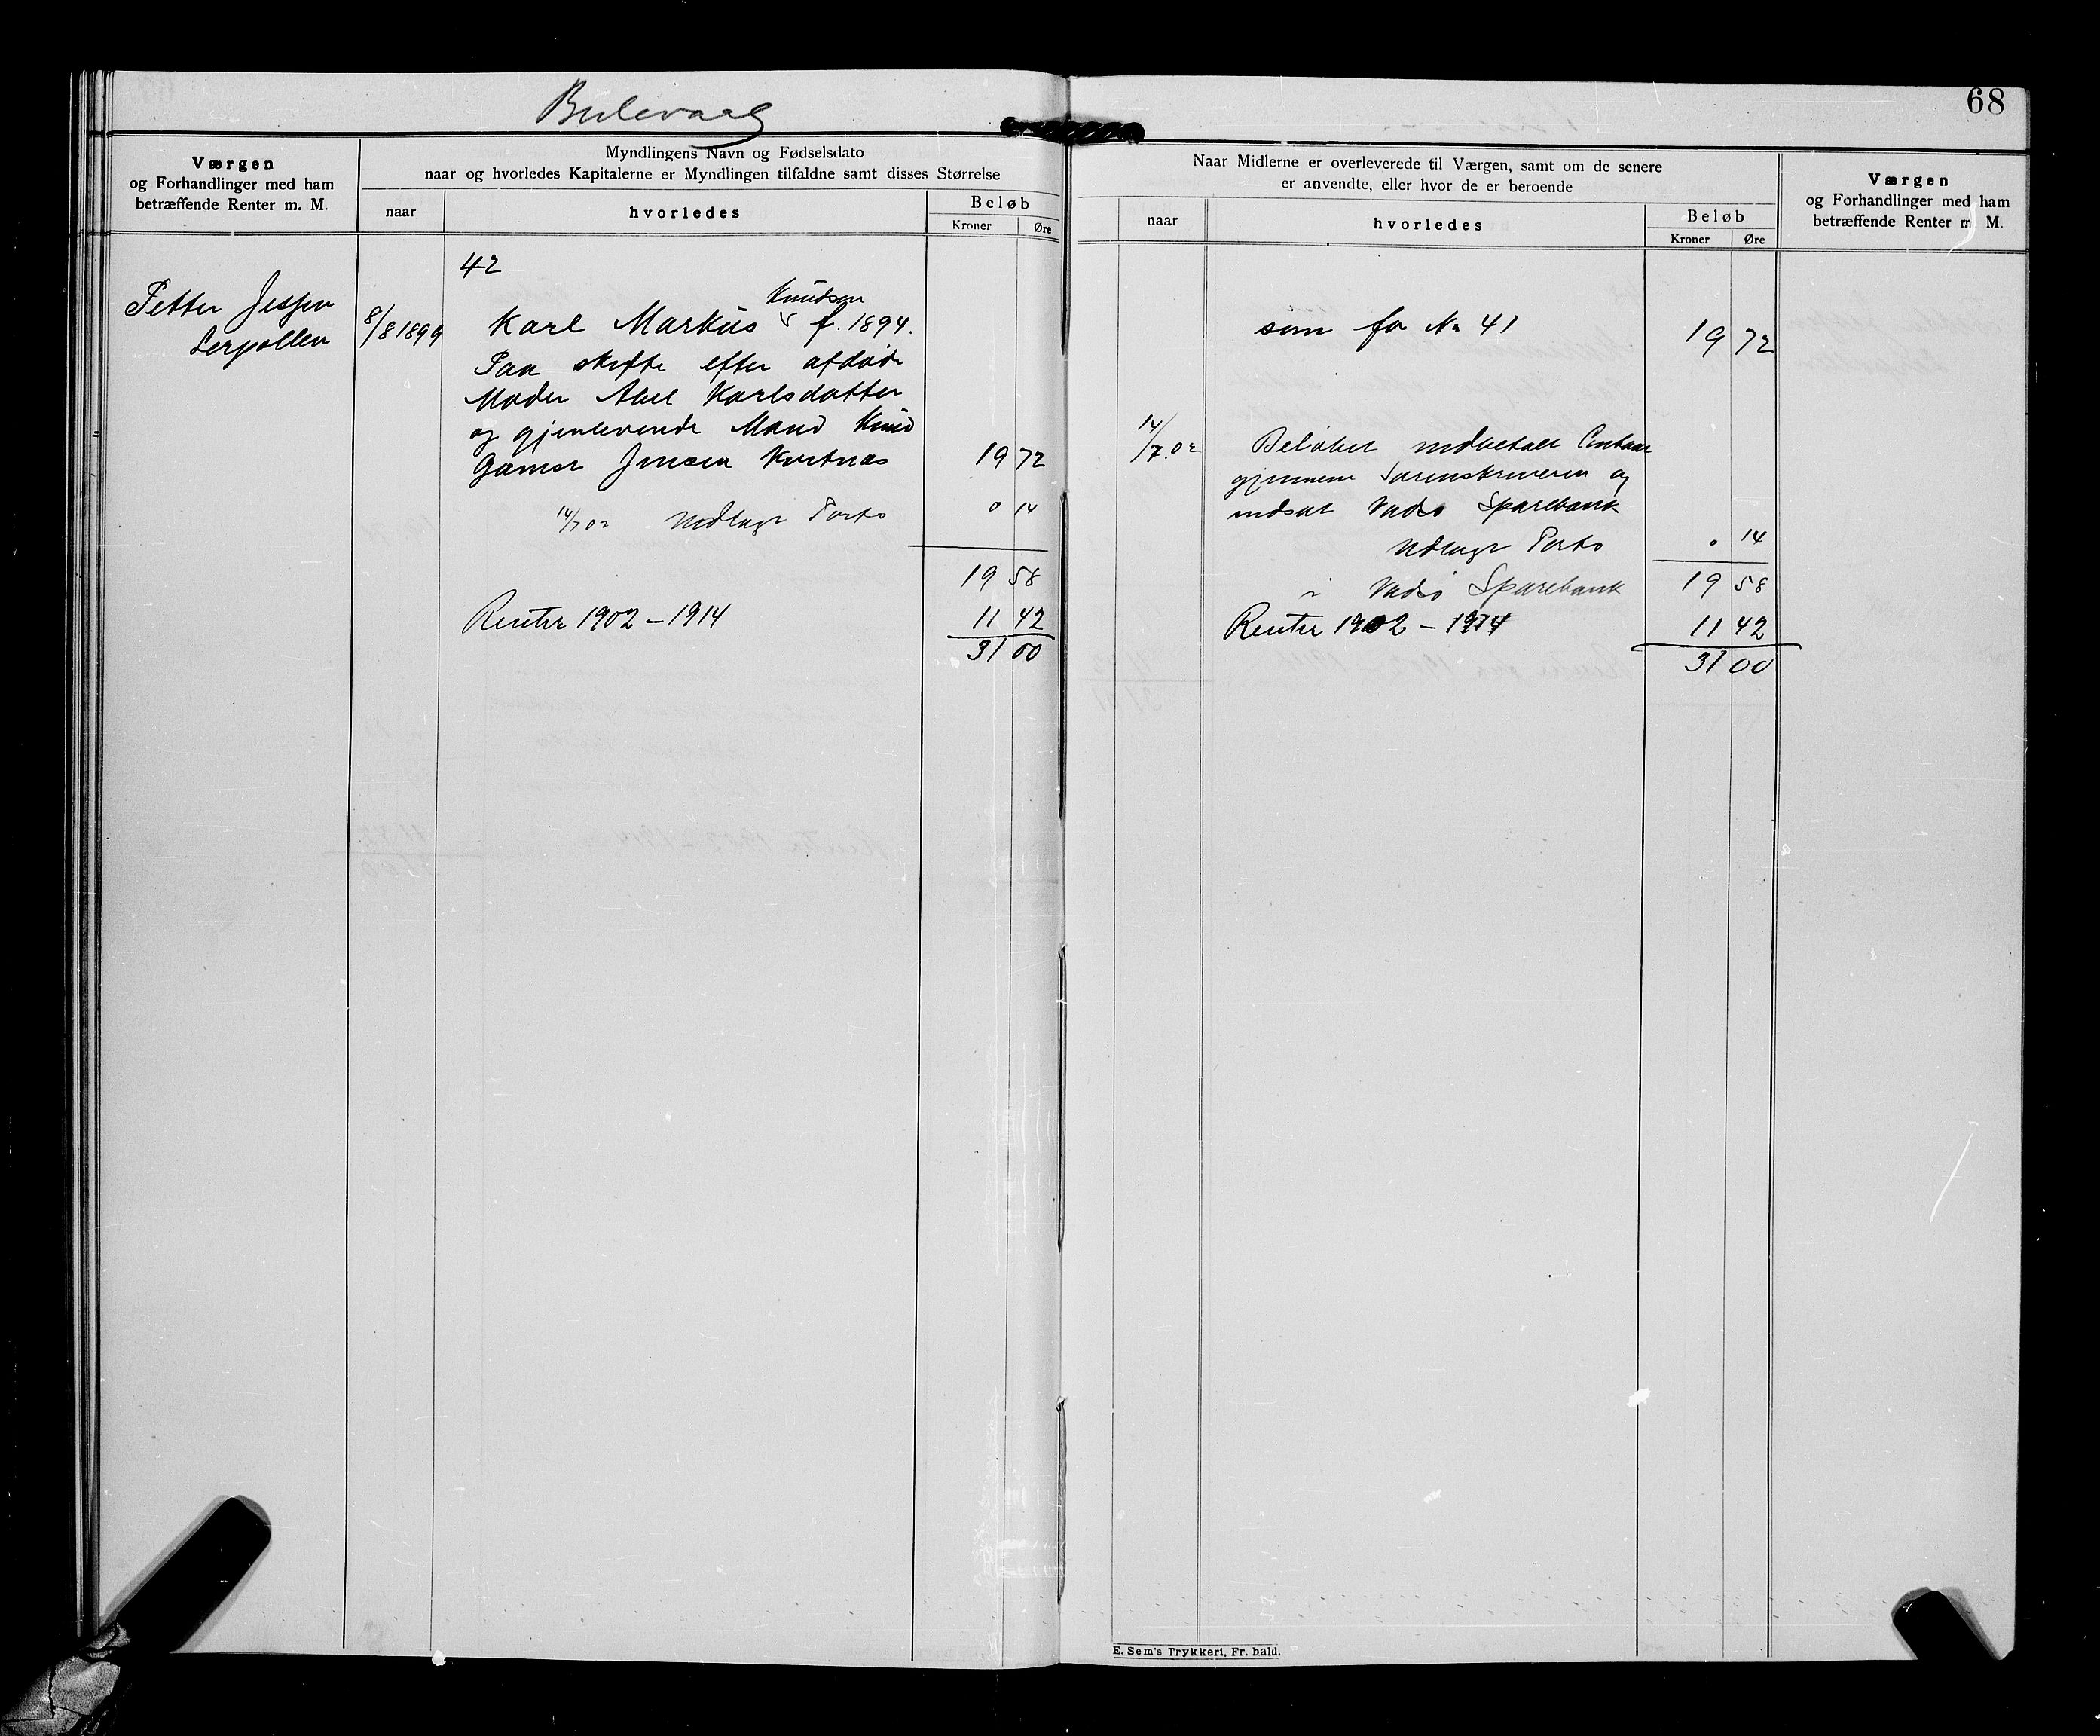 Bulevaag
68
Værgen
og Forhandlinger med ham
betræffende Renter m. M.
Myndlingens Navn og Fødselsdato
naar og hvorledes Kapitalerne er Myndlingen tilfaldne samt disses Størrelse
naar
hvorledes
Beløb
Kroner Øre
Naar Midlerne er overleverede til Værgen, samt om de senere
er anvendte, eller hvor de er beroende
naar
hvorledes
Beløb
Kroner Øre
Værgen
og Forhandlinger med ham
betræffende Renter m. M.
42
Petter Jessen
Lerpollen
8/8 1899
Knudsen
Karl Markus f. 1894.
Paa skifte efter afdøde
Moder Abel Karlsdatter
og gjenlevende Mand Knud
Jensen 19 72
14/7 02 Udlagt Porto 0 14
19 58
Renter 1902 - 1914 11 42
31 00
som for No 41 19 72
14/7.02 Beløbet indbetalt Contant
gjennem Sorenskriveren og
indsat Vadsø Sparebank
Udlagt Porto 0 14
i Vadsø Sparebank 19 58
Renter 1902 - 1914 11 42
31 00
E. Sem's Trykkeri, Fr. hald.